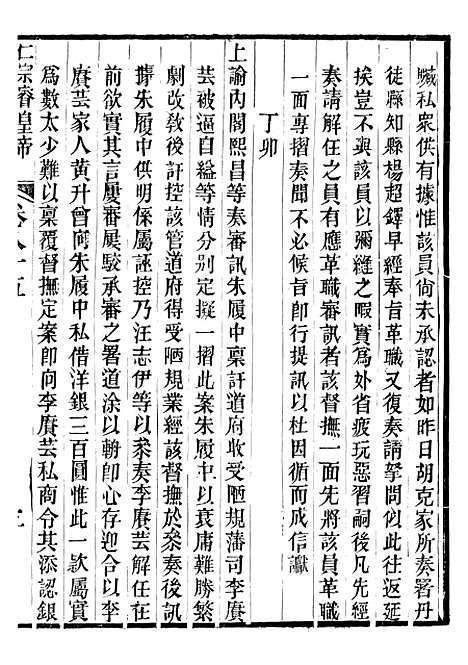 贓私衆供有據惟該員尙未承認者如昨日胡克家所奏署丹
徒縣知縣楊超鐸早經奉旨革職又復奏請拏問似此往返延
挨豈不與該員以彌縫之暇實爲外省疲玩惡習嗣後凡先經
奏請解任之員有應革職審訊者該督撫一面先將該員革職
一面專摺奏聞不必候旨卽行提訊以杜因循而成信讞
丁卯
上諭內閣熙昌等奏審訊朱履中稟訐道府收受陋規藩司李賡
芸被逼自縊等情分別定擬一摺此案朱履中以衰庸難勝繁
劇改敎後訐控該管道府得受陋規業經該督撫於叅奏後訊
據朱履中供明係屬誣控乃汪志伊等以叅奏李賡芸解任在
前欲實其言屢審屢駁承審之署道涂以輈卽心存迎合以李
賡芸家人黃升曾向朱履中私借洋銀三百圓惟此一款屬實
爲數太少難以稟覆督撫定案卽向李賡芸私商令其添認銀
仁宗睿皇帝
卷八十五